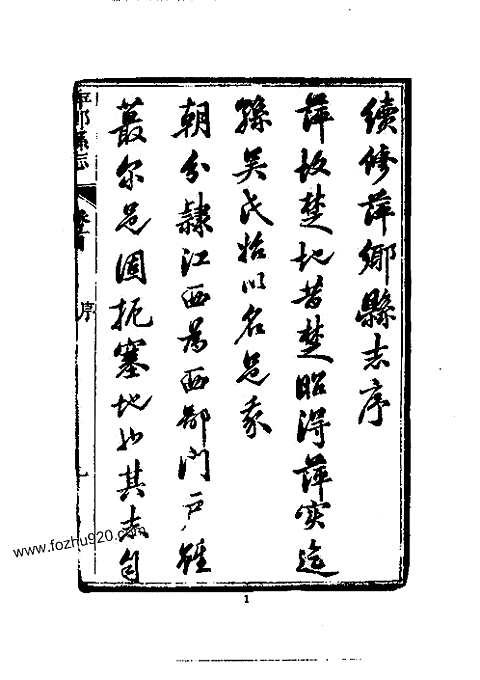 續修萍鄉縣志序
萍故楚地昔楚昭得萍實迄
孫吳氏始以名邑我
朝分隸江西為西鄙門戶雖
蕞尔邑固扼塞地也其志自
萍鄉縣志
序
1
www.fozhu920.com